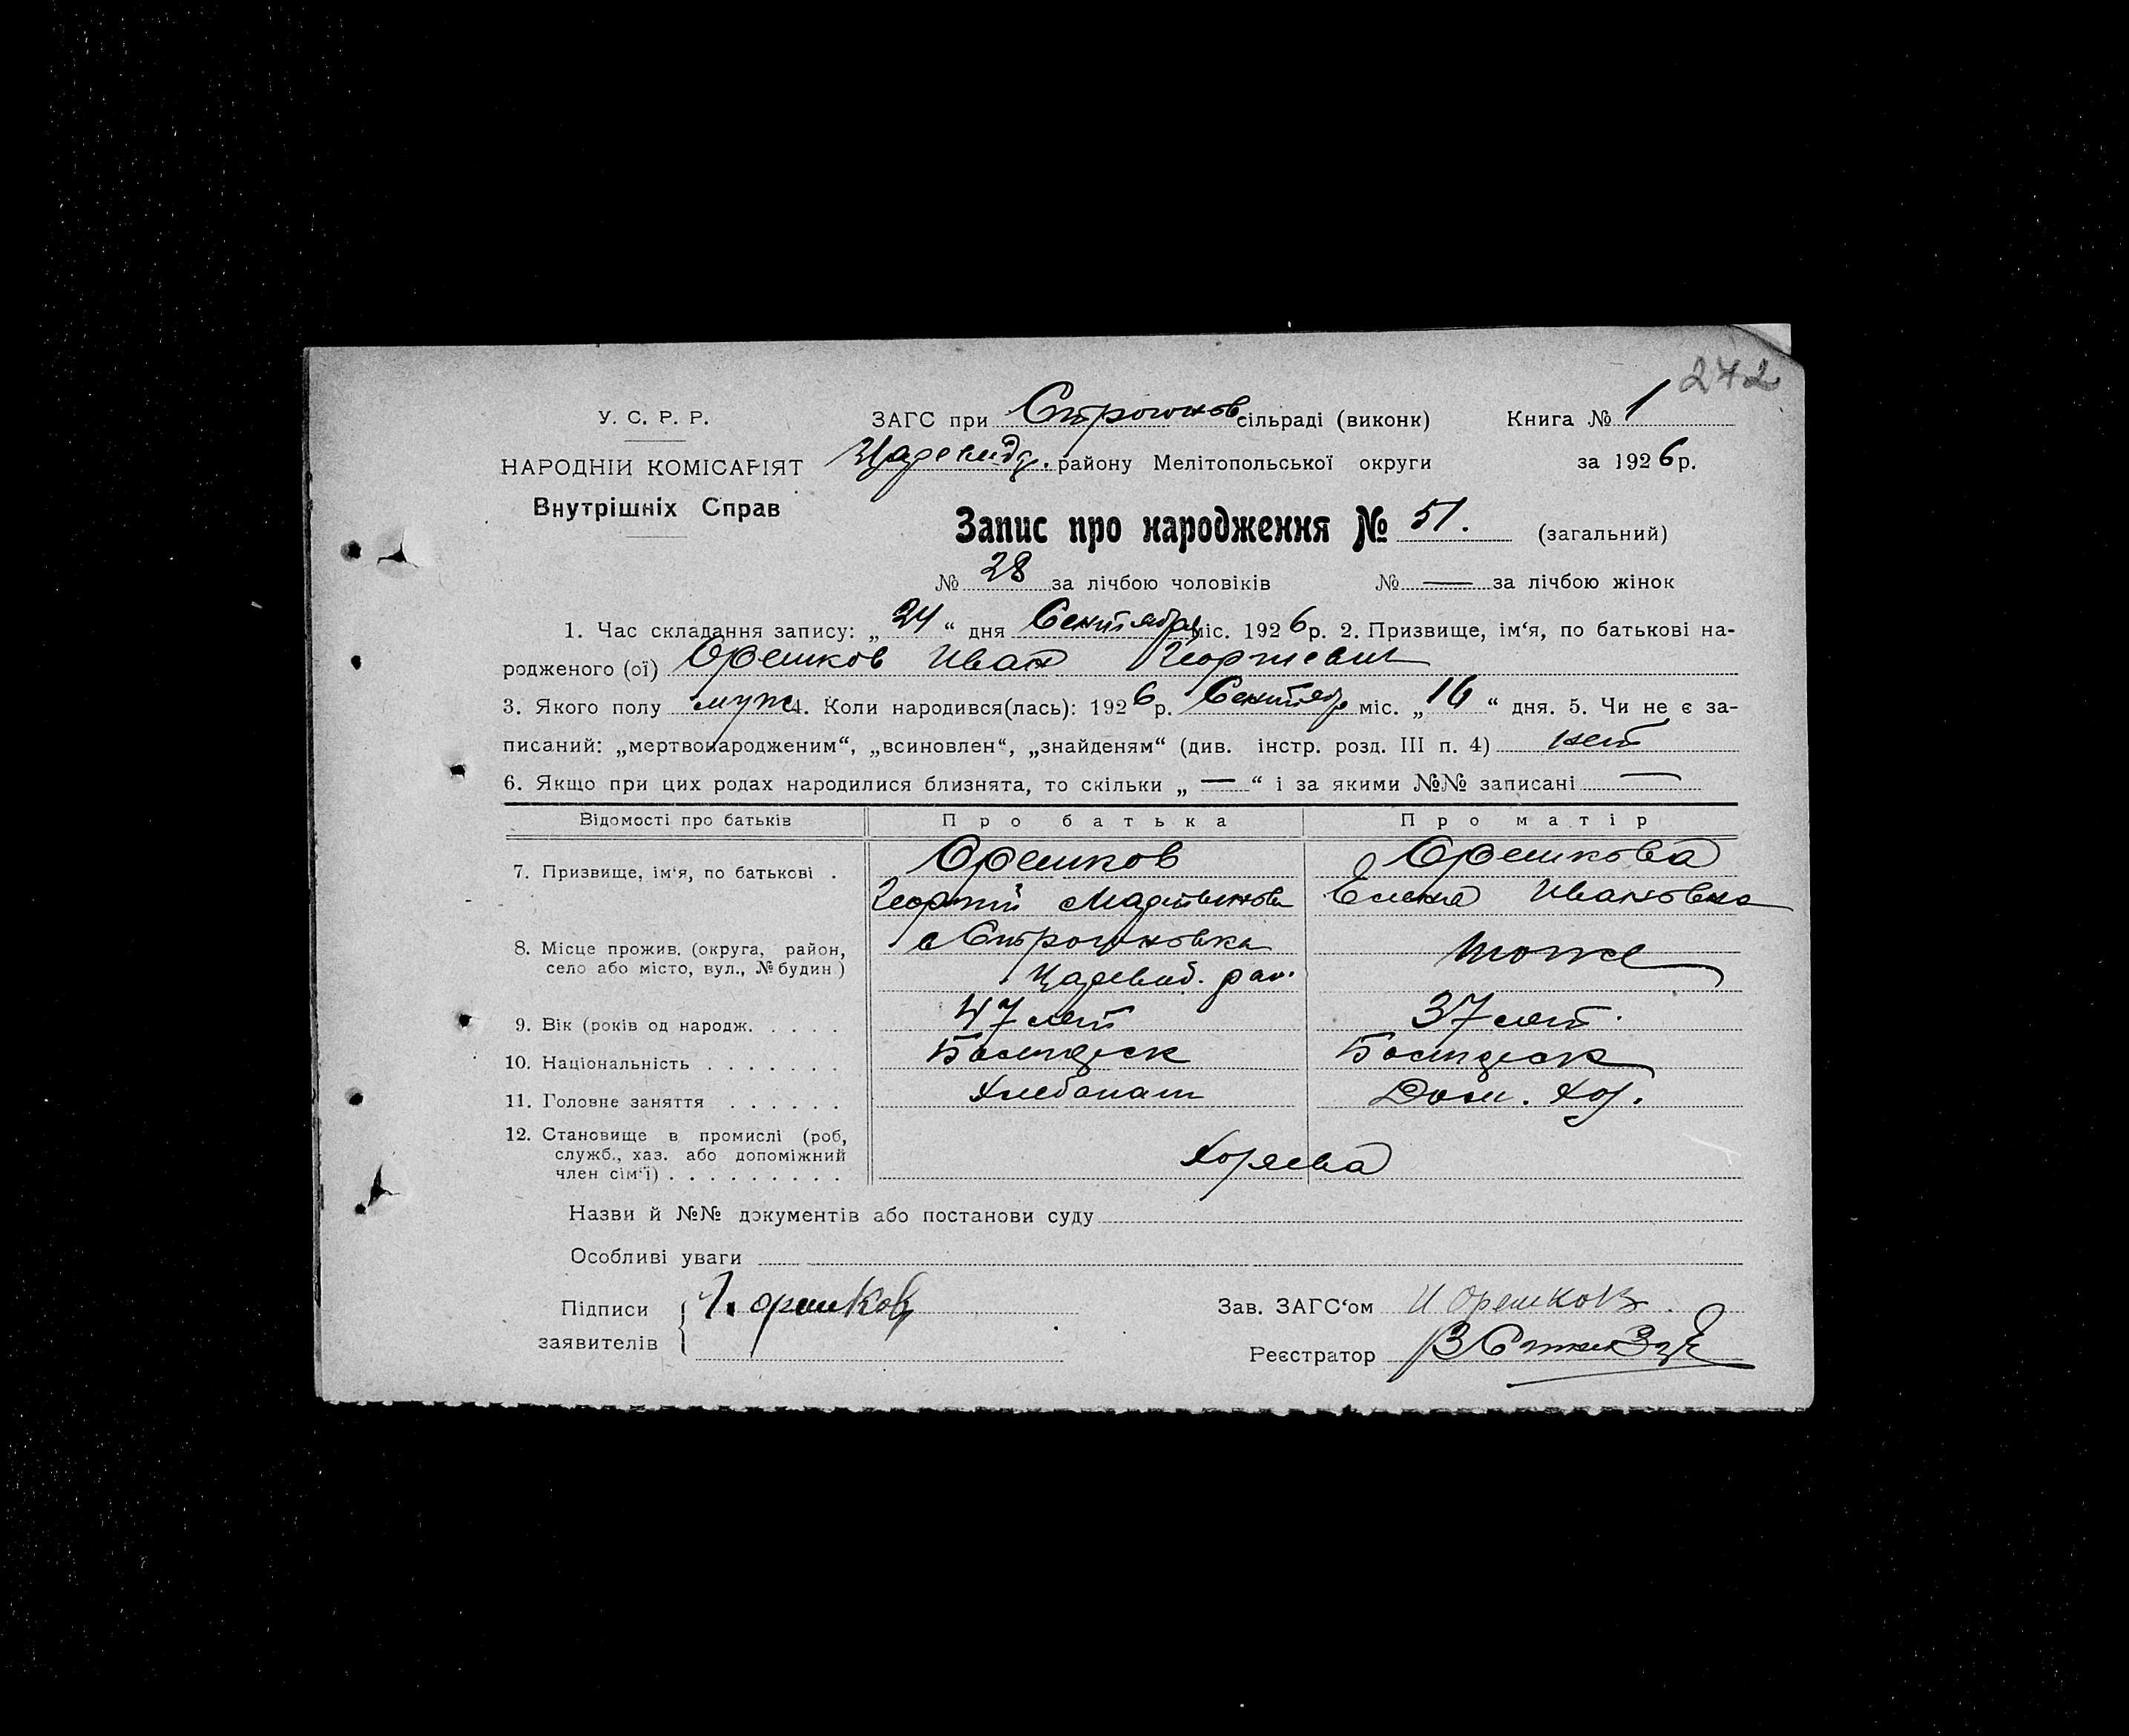 272
У. С. Р. Р.
ЗАГС при Строгонов сільраді (виконк) Книга № 1
НАРОДНІЙ КОМІСАРІЯТ
району Мелітопольської округи за 1926 р.
Внутрішніх Справ
Запис про народження № 51. (загальний)
№ 28 за лічбою чоловіків № — за лічбою жінок
1. Час складання запису: „ 24 “ дня Сентября міс. 1926 р. 2. Призвище, ім‘я, по батькові на-
родженого (ої) Орешков Иван Георгиевич
3. Якого полу муж 4. Коли народився(лась): 1926 р. Сентябр міс. „ 16 “ дня. 5. Чи не є за-
писаний: „мертвонародженим“, „всиновлен“, „знайденям“ (див. інстр. розд. III п. 4) нет
6. Якщо при цих родах народилися близнята, то скільки „ — “ і за якими №№ записані —
Відомості про батьків Про батька Про матір
7. Призвище, ім‘я, по батькові . Орешков Орешкова
Георгий Мартынов Елена Ивановна
8. Місце прожив. (округа, район, с Строгоновка тоже
село або місто, вул., № будин) Царевод. рай.
9. Вік (років од народж. . . . . 47 лет 37 лет.
10. Національність . . . . . . . Болгарск Болгарск
11. Головне заняття . . . . . . Хлебопаш Дом. Хоз.
12. Становище в промислі (роб,
служб., хаз. або допоміжний
член сім‘ї) . . . . . . . . . Хозяева
Назви й №№ документів або постанови суду
Особливі уваги
Підписи Г. Орешков Зав. ЗАГС‘ом И Орешков
заявителів Реєстратор